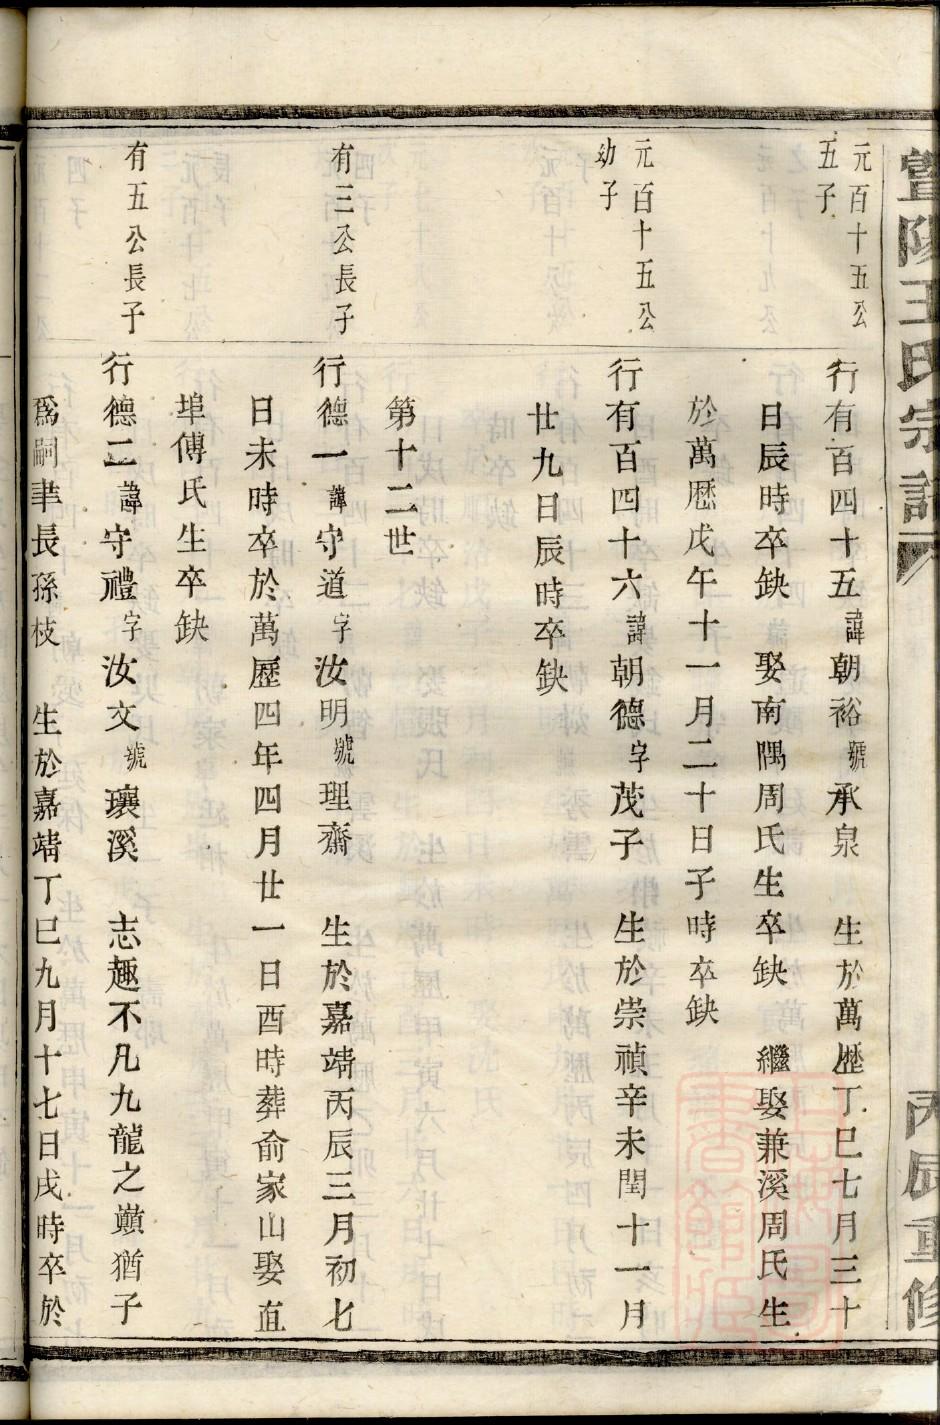 暨陽王氏宗譜
丙辰重修
元百十五公
五子
行有百四十五諱朝裕號承泉 生於萬歷丁巳七月三十
日辰時卒缺 娶南隅周氏生卒缺 繼娶兼溪周氏生
於萬歷戊午十一月二十日子時卒缺
元百十五公
幼子
行有百四十六諱朝德字茂子 生於崇禎辛未閏十一月
廿九日辰時卒缺
第十二世
有三公長子
行德一諱守道字汝明號理齋 生於嘉靖丙辰三月初七
日未時卒於萬歷四年四月廿一日酉時葬俞家山娶直
埠傅氏生卒缺
有五公長子
行德二諱守禮字汝文號瓖溪 志趣不凡九龍之巔猶子
爲嗣聿長孫枝 生於嘉靖丁巳九月十七日戌時卒於